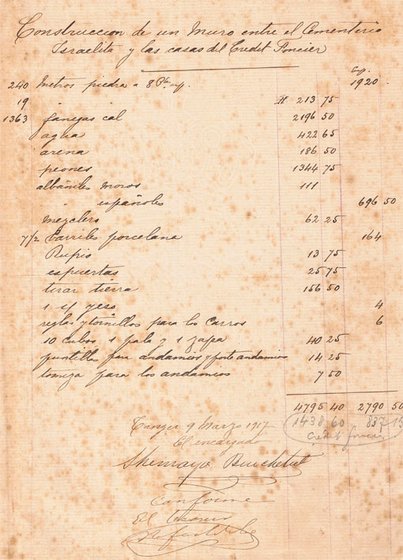 Construccion de un Muro entre el Cementerio
Israelita y las casas del Credit Foncier
240 Metros piedra a 8 Pts 1920
19 " " 213 75
1363 fanegas cal 2196 50
agua 422 65
arena 186 50
peones 1344 75
albañiles moros 111
" españoles 696 50
mezclero 62 25
7 1/2 barriles porcelana 164
Rufio 13 75
espuertas 25 75
tirar tierra 156 50
yeso 4
reglas y tornillos para los carros 6
10 cubos 1 pala y 1 zapa 40 25
puntilla para andamios y andamios 14 25
tomiza para los andamios 7 50
4795 40 2790 50
1438 60 837 15
Credit foncier
Tanger 9 Marzo 1917
El encargado
Conforme
El